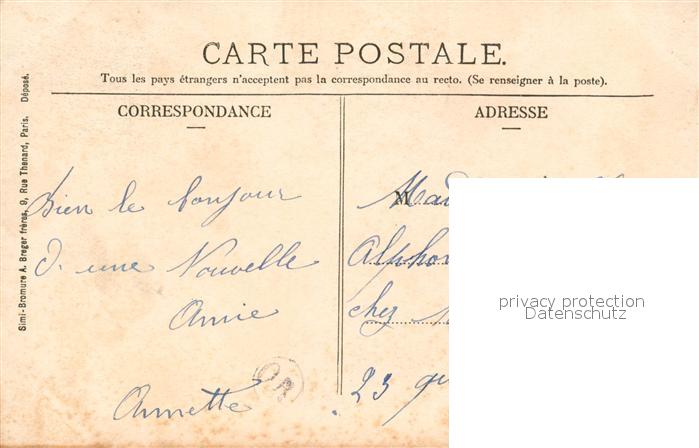 CARTE POSTALE.
Tous les pays étrangers n'acceptent pas la correspondance au recto. (Se renseigner à la poste).
CORRESPONDANCE
Bien le bonjour
d'une Nouvelle
Amie
Annette
ADRESSE
M
chez
23
privacy protection
Datenschutz
Simi-Bromure A. Breger frères, 9, Rue Thenard, Paris. Déposé.